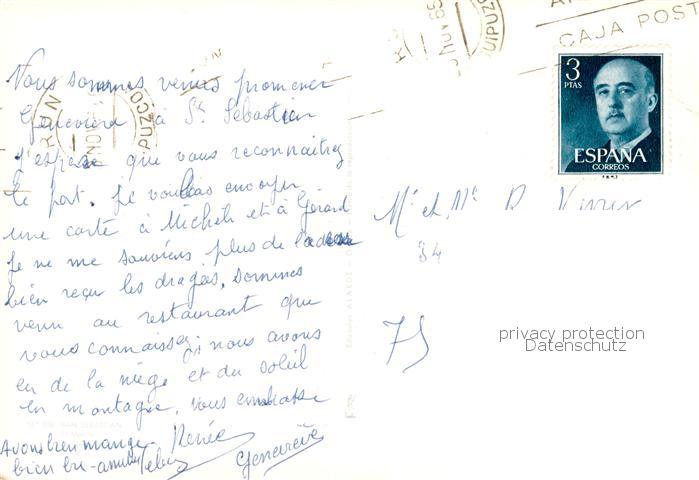 Vous sommes venus promener
Geneviève à St Sébastien
j'espère que vous reconnaitrez
le port. Je voulais envoyer
une carte à Michel et à Gérard
Je ne me souviens plus de l'adresse
bien reçu les dragées, sommes
venu au restaurant que
vous connaissez, nous avons
eu de la neige et du soleil
en montagne, vous embrasse
Renée
Avons bien mangé
bien bu
Geneviève
IRUN
GUIPUZCOA
CAJA POST
3
PTAS
ESPAÑA
CORREOS
Mr et Mme D
34
75
privacy protection
Datenschutz